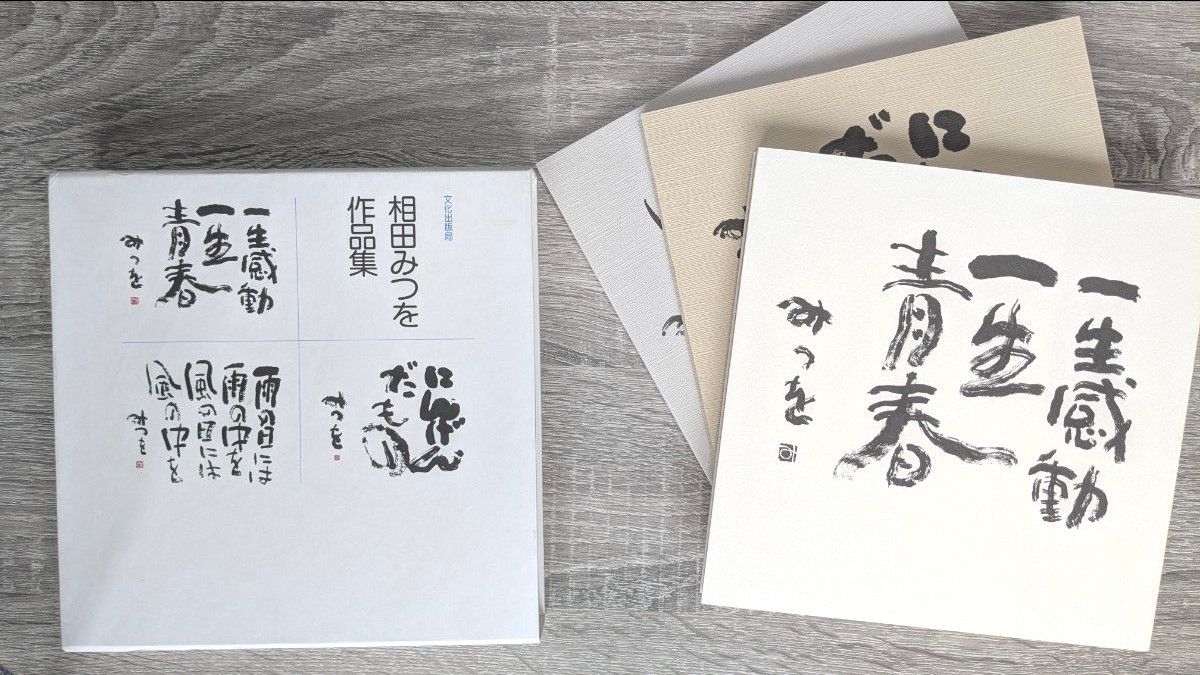 文化出版局
相田みつを
作品集
一生感動
一生
青春
みつを
にんげん
だもの
みつを
雨の日には
雨の中を
風の日には
風の中を
みつを
に
だ
一生感動
一生
青春
みつを